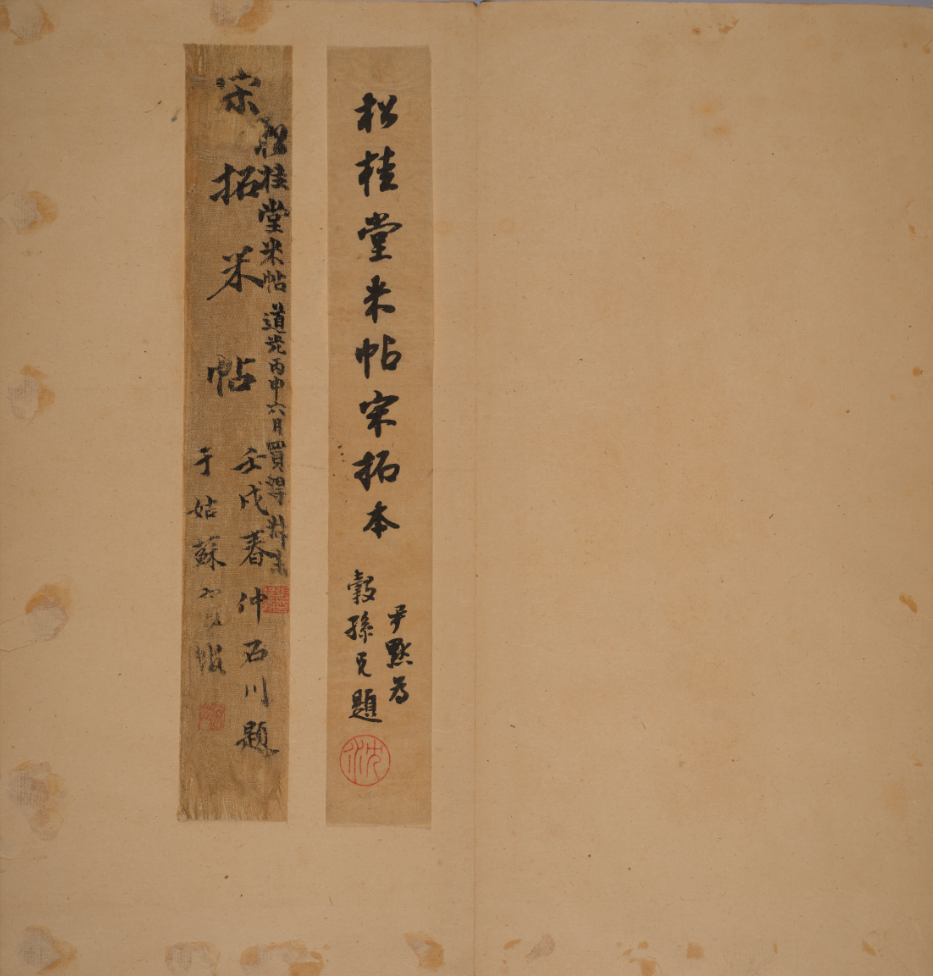 松桂堂米帖宋拓本
尹默為
穀孫兄題
沈
松桂堂米帖 道光丙申六月買得
宋拓米帖
壬戌春仲石川題
于姑蘇